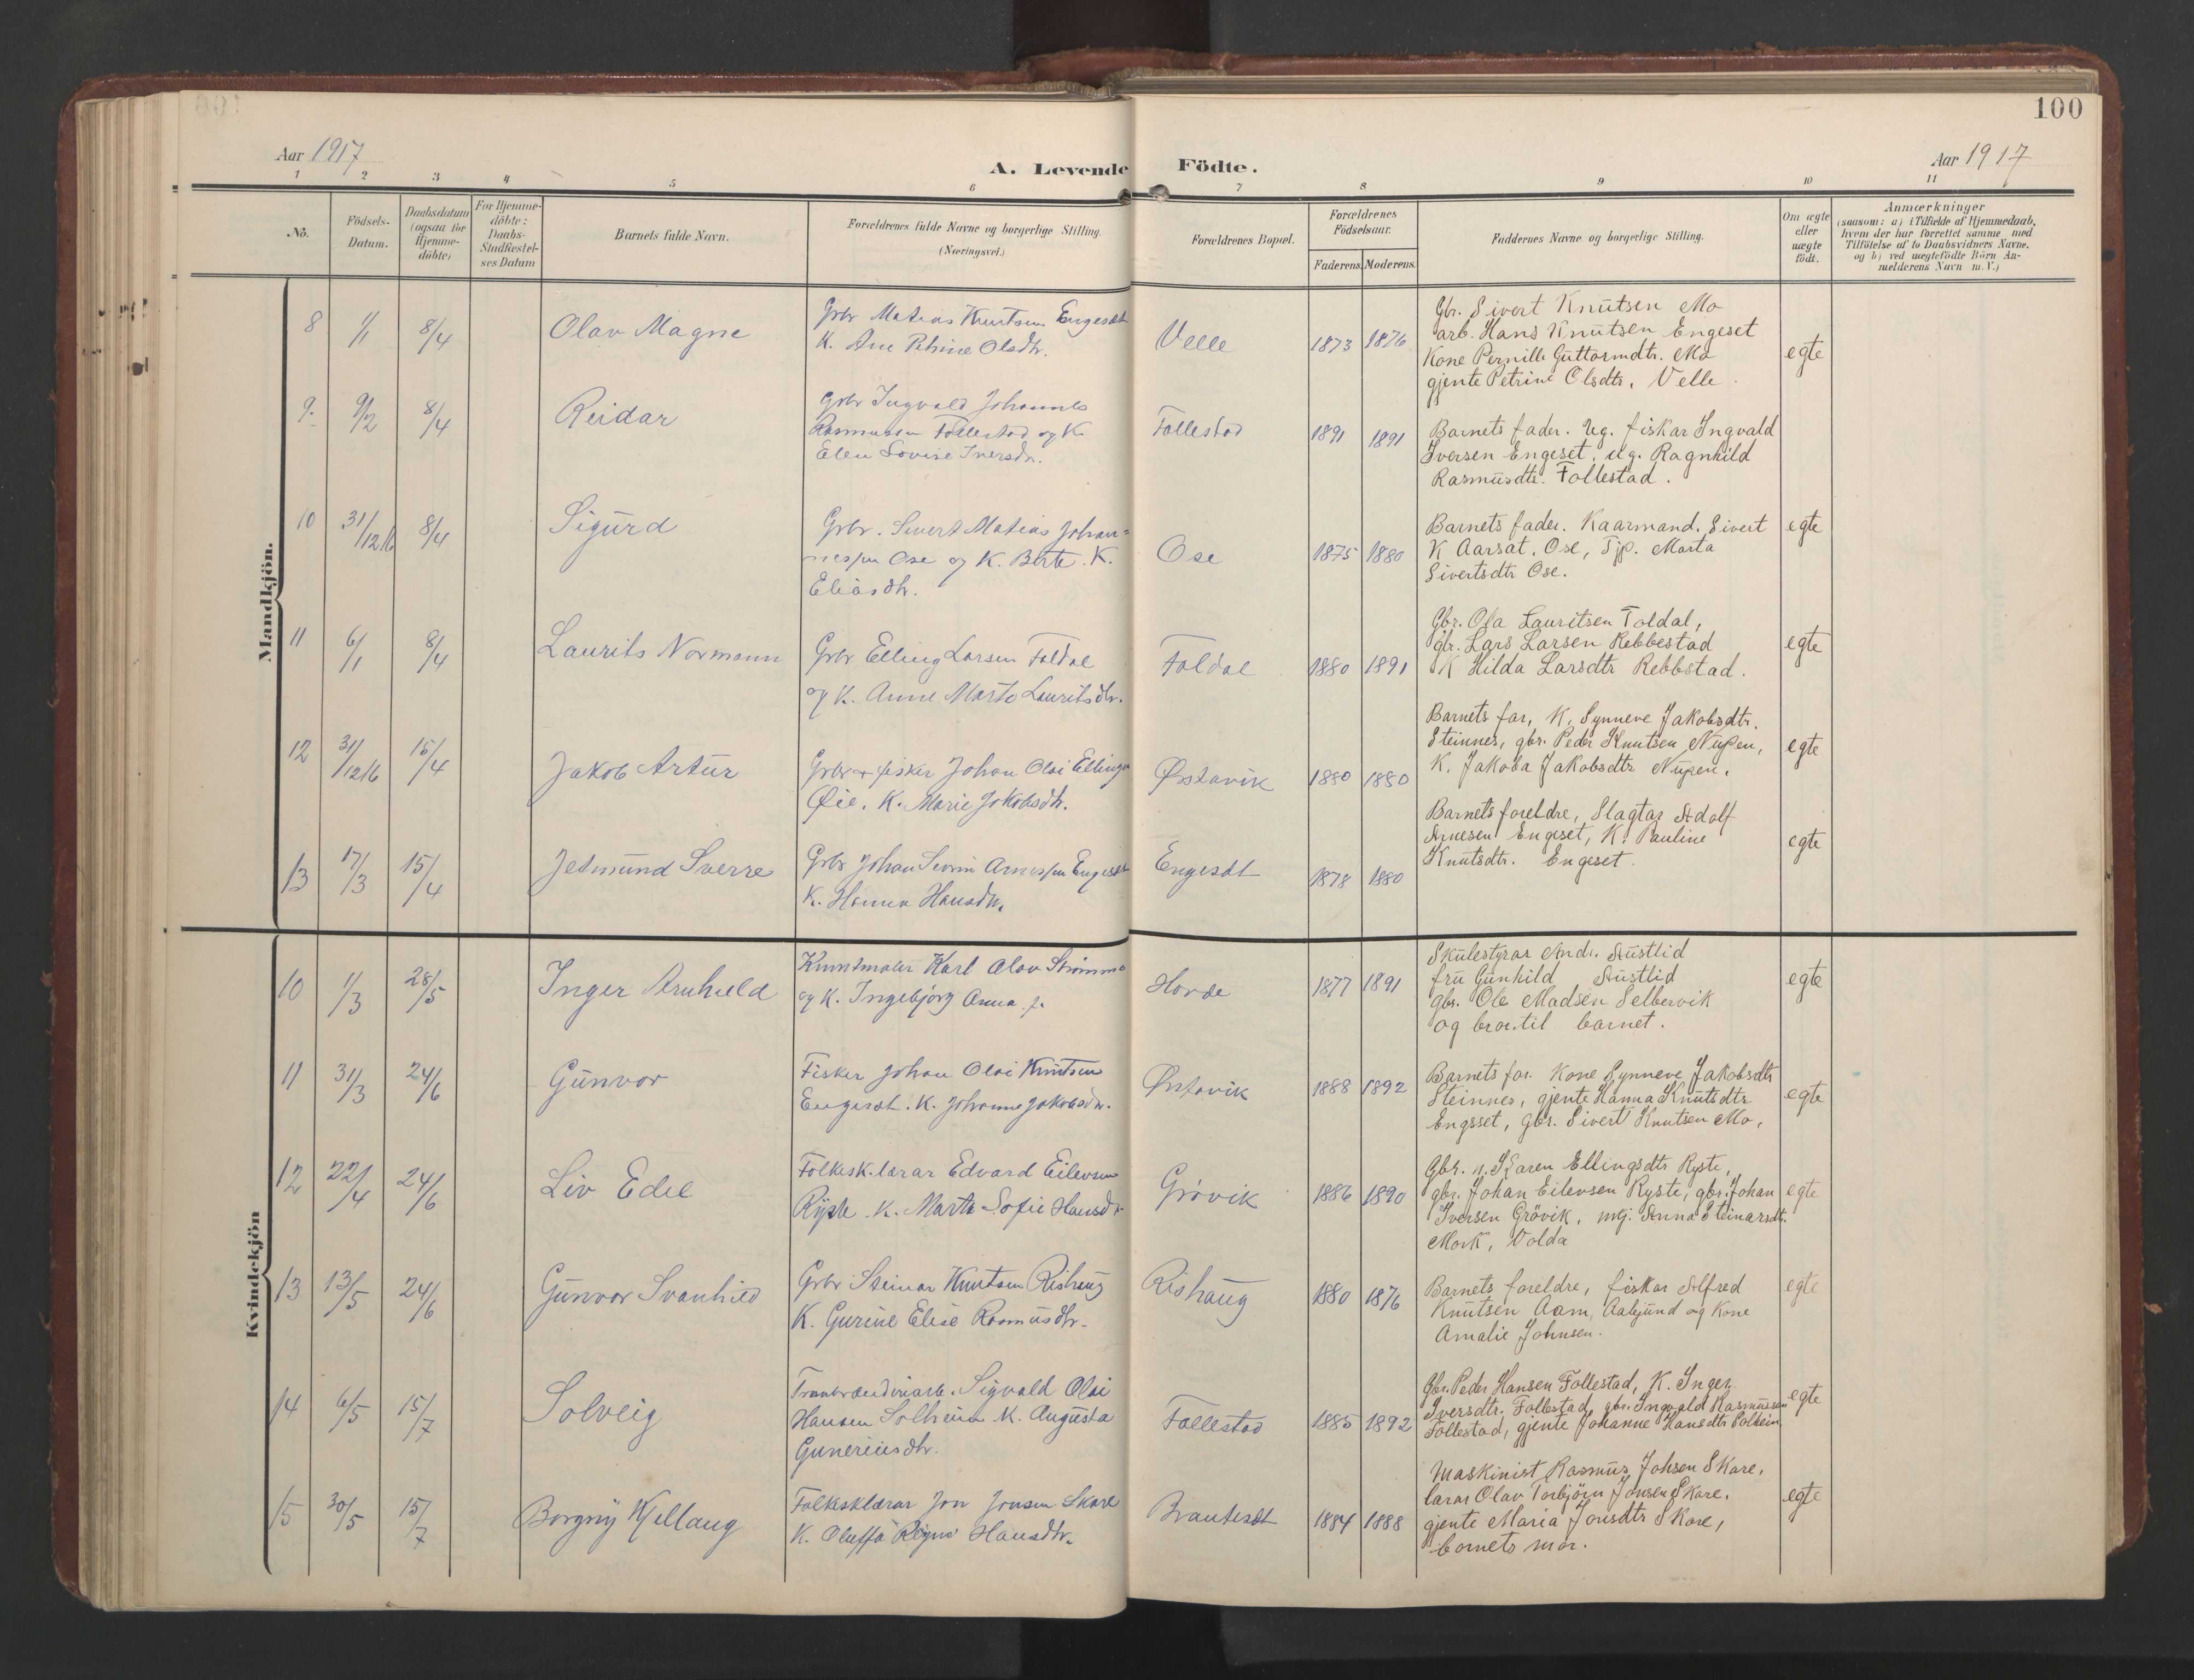 100
Aar 1917
A. Levende Födte.
Aar 1917
1 2 3 4 5 6 7 8 9 10 11
No.
Födsels-
Datum.
Daabsdatum
(ogsaa for
Hjemme-
döbte)
For Hjemme-
döbte:
Daabs-
Stadfæstel-
ses Datum
Barnets fulde Navn.
Forældrenes fulde Navne og borgerlige Stilling.
(Næringsvei.)
Forældrenes Bopæl.
Forældrenes
Födselsaar.
Faderens. Moderens.
Faddernes Navne og borgerlige Stilling.
Om ægte
eller
uægte
födt.
Anmærkninger
(saasom: a) i Tilfælde af Hjemmedaab,
hvem der har forrettet samme med
Tilföielse af to Daabsvidners Navne,
og b) ved uægtefödte Börn An-
melderens Navn m.V.)
Mandkjön.
8 1/1 8/4 Olav Magne
Grbr Matias Knutsen Engesæt
K. Ane Petrine Olsdtr.
Velle 1873 1876
Gbr. Sivert Knutsen Mo
arb. Hans Knutsen Engeset
Kone Pernille Guttormdtr. Mo
gjente Petrine Olsdtr. Velle.
egte
9. 9/2 8/4 Reidar
Grbr Ingvald Johannes
Rasmussen Follestad og K.
Elen Lovise Iversdr.
Follestad 1891 1891
Barnets fader. Ug. fiskar Ingvald
Iversen Engeset, ug. Ragnhild
Rasmusdtr. Follestad.
10 31/12 16 8/4 Sigurd
Grbr. Sivert Matias Johan-
nessen Ose og K. Berte. K.
Eliasdtr.
Ose 1875 1880
Barnets fader. Kaarmand. Sivert
K Aarsat. Ose, Tjp. Marta
Sivertsdtr Ose.
egte
11 6/1 8/4 Laurits Normann
Grbr Elling Larsen Foldal
og K. Anne Marte Lauritsdtr.
Foldal 1880 1891
Gbr. Ola Lauritsen Foldal,
gbr. Lars Larsen Rebbestad
K Hilda Larsdtr Rebbstad.
egte
12 31/12 16 15/4 Jakob Artur
Grbr + fisker Johan Olai Ellings
Øie. K. Marie Jakobsdtr.
Ørstavik 1880 1880
Barnets far, K. Synneve Jakobsdtr.
Steinnes, gbr. Peder Knutsen Nupen,
K. Jakoba Jakobsdtr Nupen.
egte
13 17/3 15/4 Jetmund Sverre
Grbr Johan Severin Arnessen Engesæt
K. Hanna Hansdtr.
Engesæt 1878 1880
Barnets foreldre, Slagtar Adolf
Arnesen Engeset, K. Pauline
Knutsdtr. Engeset.
egte
Kvindekjön
10 1/3 28/5 Inger Arnhild
Kunstmaler Karl Olav Strømme
og K. Ingebjørg Anna f.
Hovde 1877 1891
Skulestyrar Andr. Austlid
fru Gunhild Austlid
gbr. Ole Madsen Selbervik
og bror til barnet.
egte
11 31/3 24/6 Gunvor
Fisker Johan Olai Knutsen
Engesæt. K. Johanne Jakobsdr.
Ørstavik 1888 1892
Barnets far. Kone Synneve Jakobsdtr
Steinnes, gjente Hanna Knutsdtr
Engsset, gbr. Sivert Knutsen Mo,
egte
12 22/4 24/6 Liv Edel
Folkesk.lærar Edvard Eilevsen
Ryste K. Marta Sofie Hansdr
Grøvik 1886 1890
Gbr. n. Karen Ellingsdtr Ryste,
gbr. Johan Eilevsen Ryste, gbr. Johan
Iversen Grövik, mtj. Anna Steinarsdtr.
Mork, Volda
egte
13 13/5 24/6 Gunvor Svanhild
Grbr Steinar Knutsen Rishaug
K. Gurine Elise Rasmusdtr.
Rishaug 1880 1876
Barnets foreldre, fiskar Alfred
Knutsen Aam, Aalesund og Kone
Amalie Johnsen.
egte
14 6/5 15/7 Solveig
Tranbrænderiarb. Sigvald Olai
Hansen Solheim K. Augusta
Gunereiusdtr.
Follestad 1885 1892
Gbr. Peder Hansen Follestad, K. Inger
Iversdtr. Follestad, gbr. Ingvald Rasmussen
Follestad, gjente Johanne Hansdtr Solheim
egte
15 30/5 15/7 Borgny Kjellaug
Folkesklærar Jon Jonsen Skare
K. Oluffa Regine Hansdtr.
Brautesæt 1884 1888
Maskinist Rasmus Johsen Skare,
lærar Olav Torbjörn Jonsen Skare.
gjente Maria Jonsdtr Skare,
barnets mor.
egte